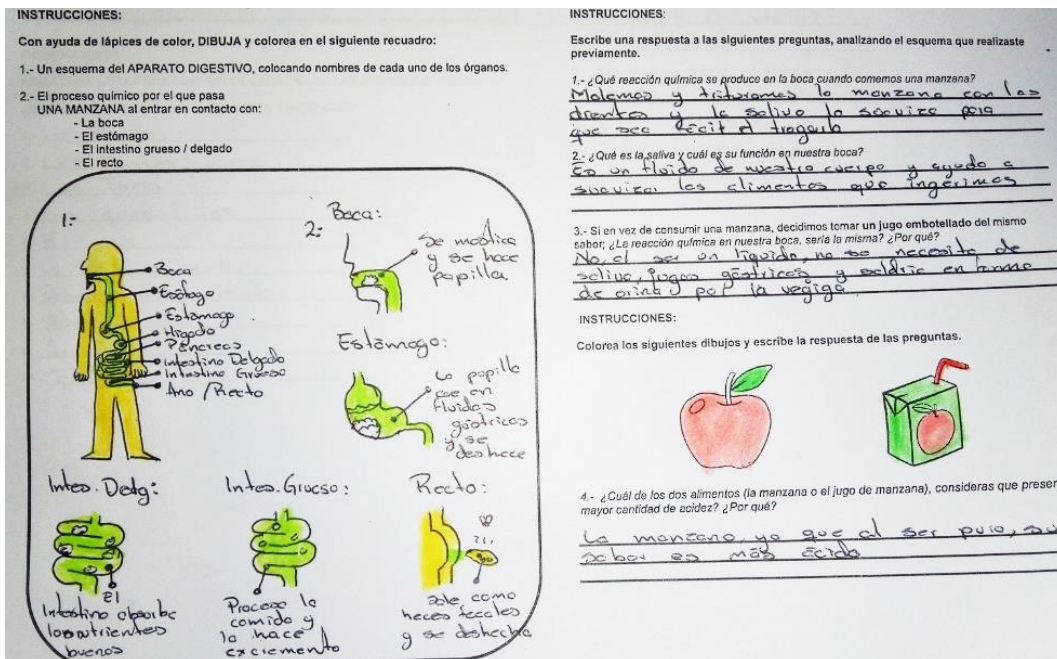 INSTRUCCIONES:
Con ayuda de lápices de color, DIBUJA y colorea en el siguiente recuadro:
1.- Un esquema del APARATO DIGESTIVO, colocando nombres de cada uno de los órganos.
2.- El proceso químico por el que pasa
UNA MANZANA al entrar en contacto con:
- La boca
- El estómago
- El intestino grueso / delgado
- El recto
1:-
Boca
Esófago
Estomago
Higado
Páncreas
intestino Delgado
Intestino Grueso
Ano /Recto
2:
Boca:
Se mastica
y se hace
papilla
Estómago:
La papilla
cae en
fluidos
gástricos
y se
deshace
Intes. Delg:
El
Intestino absorbe
los nutrientes
buenos
Intes. Grueso:
Procesa la
comida y
la hace
excremento
Recto:
sale como
heces fecales
y se deshecha
INSTRUCCIONES:
Escribe una respuesta a las siguientes preguntas, analizando el esquema que realizaste
previamente.
1.- ¿Qué reección química se produce en la boca cuando comemos una manzana?
Molemos y trituramos la manzana con los
dientes y la saliva la suaviza para
que sea fácil el tragarla
2.- ¿Qué es la saliva y cuál es su función en nuestra boca?
Es un fluido de nuestro cuerpo y ayuda a
suavizar los alimentos que ingerimos
3.- Si en vez de consumir una manzana, decidimos tomar un jugo embotellado del mismo
sabor; ¿La reacción química en nuestra boca, sería la misma? ¿Por qué?
No, al ser un líquido, no se necesita de
saliva, jugos gástricos y saldría en forma
de orina por la vegiga
INSTRUCCIONES:
Colorea los siguientes dibujos y escribe la respuesta de las preguntas.
4.- ¿Cuál de los dos alimentos (la manzana o el jugo de manzana), consideras que preser
mayor cantidad de acidez? ¿Por qué?
La manzana, ya que al ser puro, su
sabor es más ácido